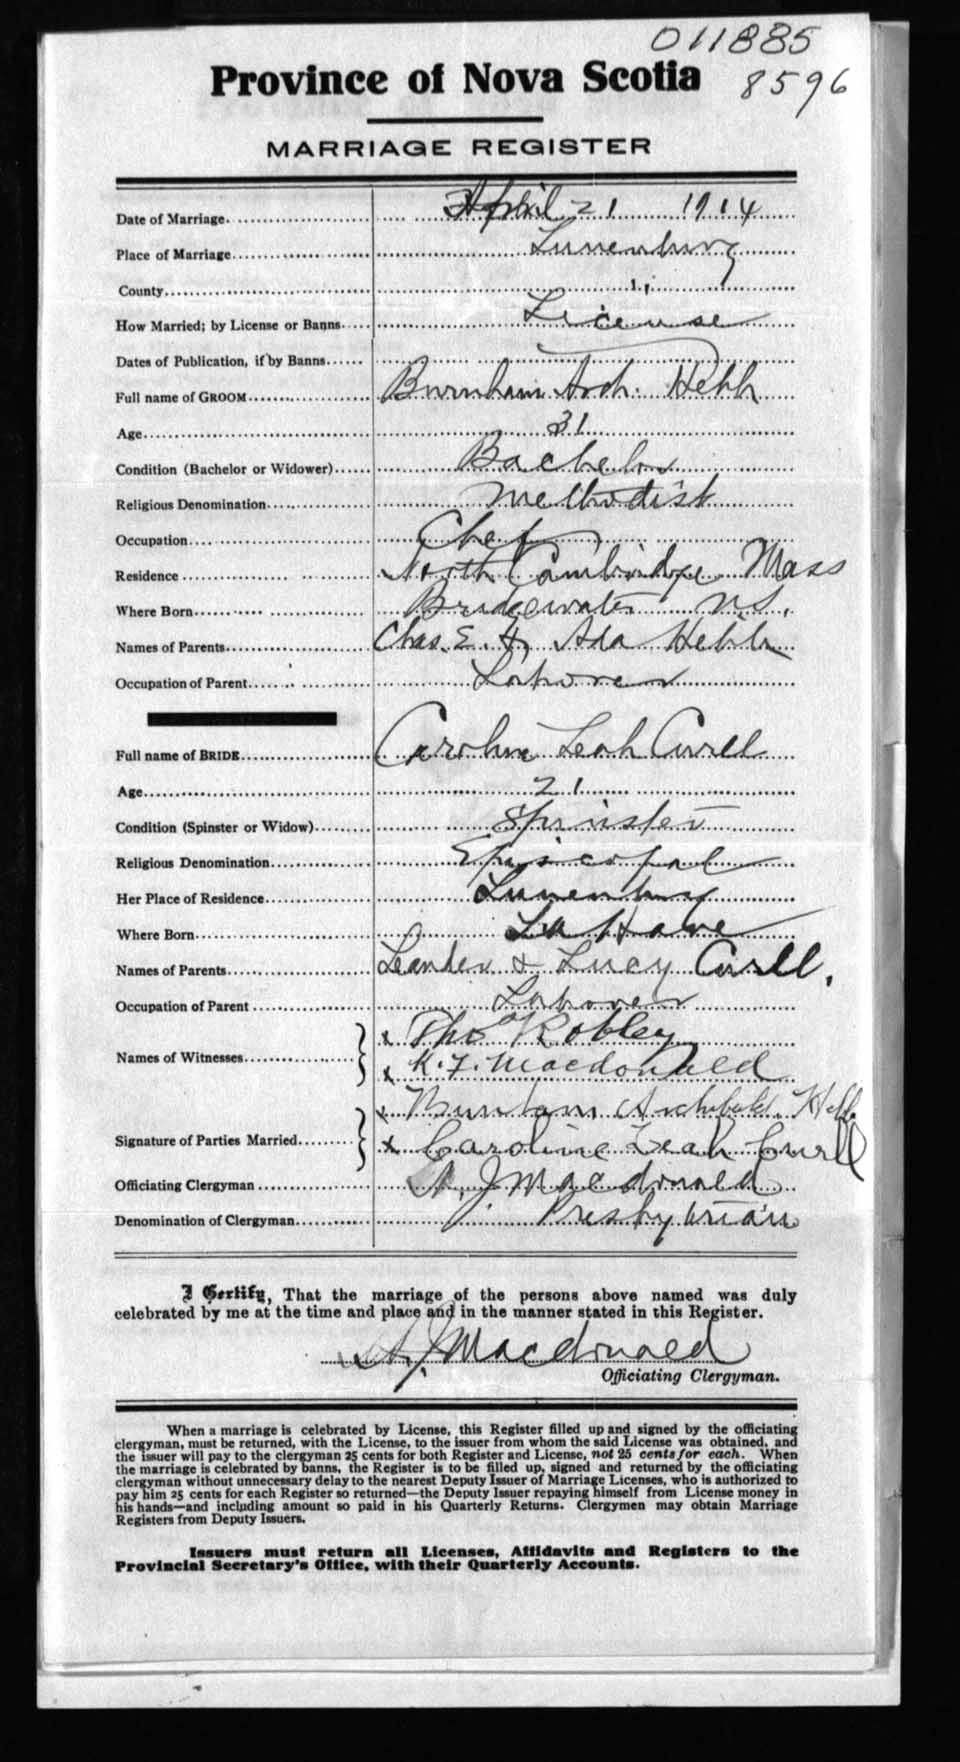 011885
Province of Nova Scotia 8596
MARRIAGE REGISTER
Date of Marriage April 21 1914
Place of Marriage Lunenburg
County "
How Married; by License or Banns License
Dates of Publication, if by Banns
Full name of GROOM Burnham Arch. Hebb
Age 31
Condition (Bachelor or Widower) Bachelor
Religious Denomination Methodist
Occupation Chef
Residence North Cambridge Mass
Where Born Bridgewater N.S.
Names of Parents Chas. E. & Ada Hebb
Occupation of Parent Laborer
Full name of BRIDE Caroline Leah Curll
Age 21
Condition (Spinster or Widow) Spinster
Religious Denomination Episcopal
Her Place of Residence Lunenburg
Where Born La Have
Names of Parents Leander & Lucy Curll.
Occupation of Parent Laborer
x Thos Robley
Names of Witnesses
x K. F. Macdonald
x Burnham Archibald Hebb
Signature of Parties Married x Caroline Leah Curll
Officiating Clergyman A. J. Macdonald
Denomination of Clergyman Presbyterian
I Certify, That the marriage of the persons above named was duly
celebrated by me at the time and place and in the manner stated in this Register.
A. J. Macdonald
Officiating Clergyman.
When a marriage is celebrated by License, this Register filled up and signed by the officiating
clergyman, must be returned, with the License, to the issuer from whom the said License was obtained, and
the issuer will pay to the clergyman 25 cents for both Register and License, not 25 cents for each. When
the marriage is celebrated by banns, the Register is to be filled up, signed and returned by the officiating
clergyman without unnecessary delay to the nearest Deputy Issuer of Marriage Licenses, who is authorized to
pay him 25 cents for each Register so returned—the Deputy Issuer repaying himself from License money in
his hands—and including amount so paid in his Quarterly Returns. Clergymen may obtain Marriage
Registers from Deputy Issuers.
Issuers must return all Licenses, Affidavits and Registers to the
Provincial Secretary's Office, with their Quarterly Accounts.